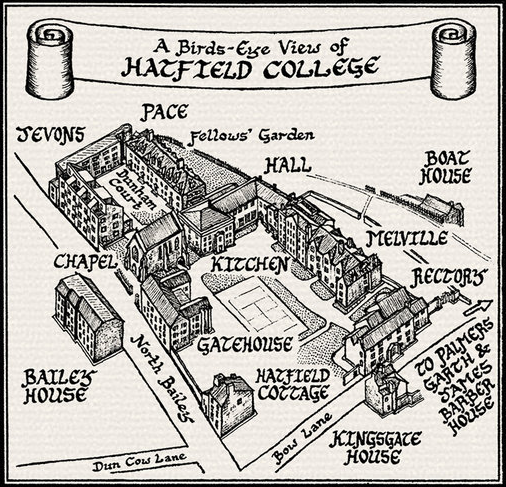 A Birds-Eye View of
HATFIELD COLLEGE
PACE
JEVONS
Fellows' Garden
HALL
BOAT
HOUSE
Dunham
Court
MELVILLE
CHAPEL
KITCHEN
RECTORY
GATEHOUSE
North Bailey
BAILEY
HOUSE
HATFIELD
COTTAGE
TO PALMERS
GARTH &
JAMES
BARBER
HOUSE
Bow Lane
KINGSGATE
HOUSE
Dun Cow Lane